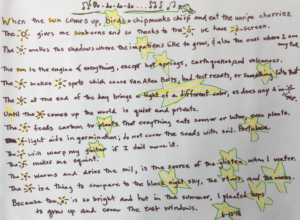 Do-do-do-do...
When the sun comes up, birds & chipmunks chirp and eat the unripe cherries.
The gives me sunburns and so thanks to the we have -screen.
The makes the shadows where the impatiens like to grow, & also the ones where I am
The sun is the engine of everything, except hot springs, earthquakes, and volcanoes.
The makes spots which cause Van Allen Belts, bad text resets, or something like that
The at the end of the day brings a light of a different color, as does any 2 in
Until the comes up the world is quiet and private.
The feeds carbon to plants that everything eats sooner or later, even plants.
The light aids in germination; do not cover the seeds with soil.
The will warp my if I do it work it.
The makes me squint.
The warms and dries the soil, is the source of the glisten when I water.
The is a thing to compare to the black night sky, the and the moon.
Because the is so bright and hot in the summer, I planted hops
to grow up and cover the east windows.